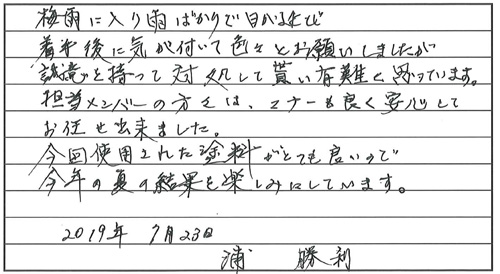 梅雨に入り雨ばかりで日がのび
着手後に気が付いて色々とお願いしましたが
誠意を持って対処して貰い有難く思っています。
担当メンバーの方々は、マナーも良く安心して
お任せ出来ました。
今回使用された塗料がとても良いので
今年の夏の結果を楽しみにしています。
2019年 7月23日
浦 勝利